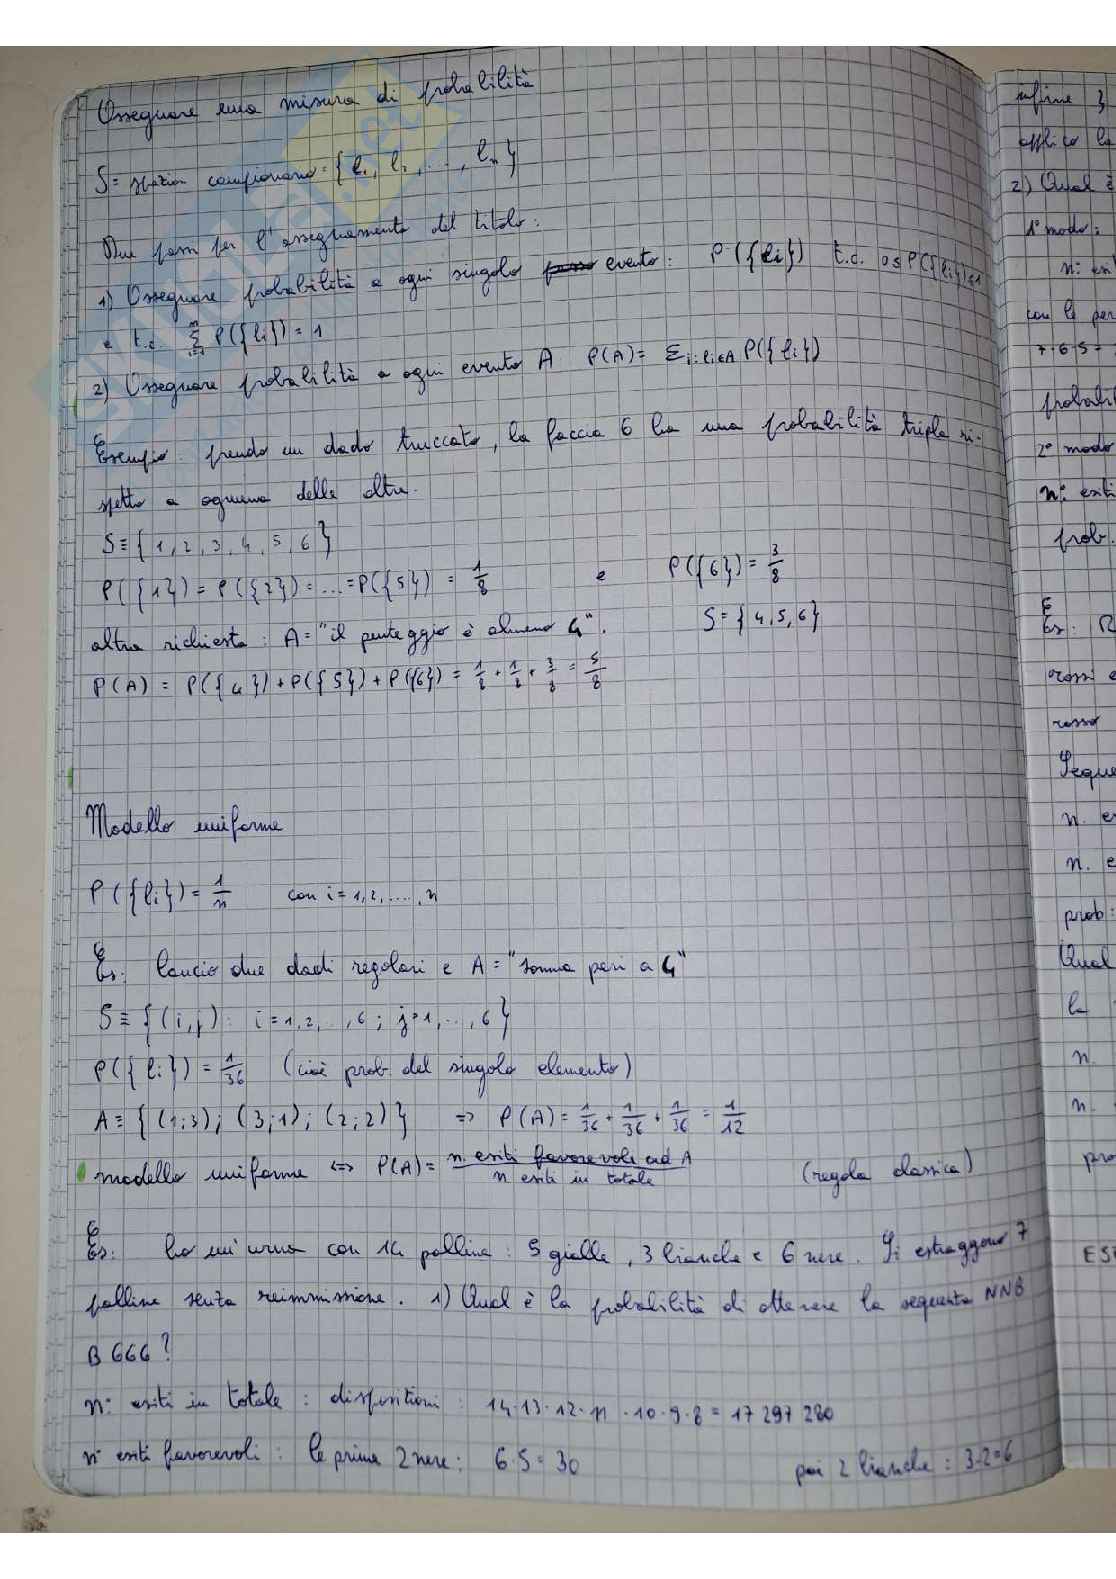 Assegnare una misura di probabilità
S= spazio campionario = {l₁, l₂, ...., lₙ}
Due passi per l'assegnamento del titolo:
1) Assegnare probabilità a ogni singolo evento: P({li}) t.c. 0≤P({li})≤1
e t.c. Σⁿᵢ₌₁ P({li}) = 1
2) Assegnare probabilità a ogni evento A P(A)= Σi:li∈A P({li})
Esempio: prendo un dado truccato, la faccia 6 ha una probabilità tripla ri-
spetto a ognuna delle altre.
S≡{1, 2, 3, 4, 5, 6}
P({1}) = P({2}) = ... = P({5}) = 1/8 e P({6}) = 3/8
altra richiesta: A= "il punteggio è almeno 4". S={4,5,6}
P(A) = P({4}) + P({5}) + P({6}) = 1/8 + 1/8 + 3/8 = 5/8
Modello uniforme
P({li}) = 1/n con i = 1,2,....,n
Es: lancio due dadi regolari e A = "somma pari a 4"
S≡ {(i,j): i=1,2,..,6; j=1,..,6}
P({li}) = 1/36 (cioè prob. del singolo elemento)
A≡ {(1;3); (3;1); (2;2)} => P(A) = 1/36 + 1/36 + 1/36 = 1/12
modello uniforme <=> P(A) = n. esiti favorevoli ad A / n esiti in totale (regola classica)
Es: ho un'urna con 14 palline: 5 gialle, 3 bianche e 6 nere. Si estraggono 7
palline senza reimmissione. 1) Qual è la probabilità di ottenere la sequenza NNB
B GGG?
n° esiti in totale: disposizioni: 14·13·12·11·10·9·8 = 17 297 280
n° esiti favorevoli: le prime 2 nere: 6·5 = 30 poi 2 bianche: 3·2=6
applico la
2) Qual è
1° modo:
con le per
7·6·5 =
probabil
2° modo
n° esiti
prob.
Es:
rossi e
rosso
Seque
n. es
n. e
prob:
Qual
la
n.
n.
pro
ESE